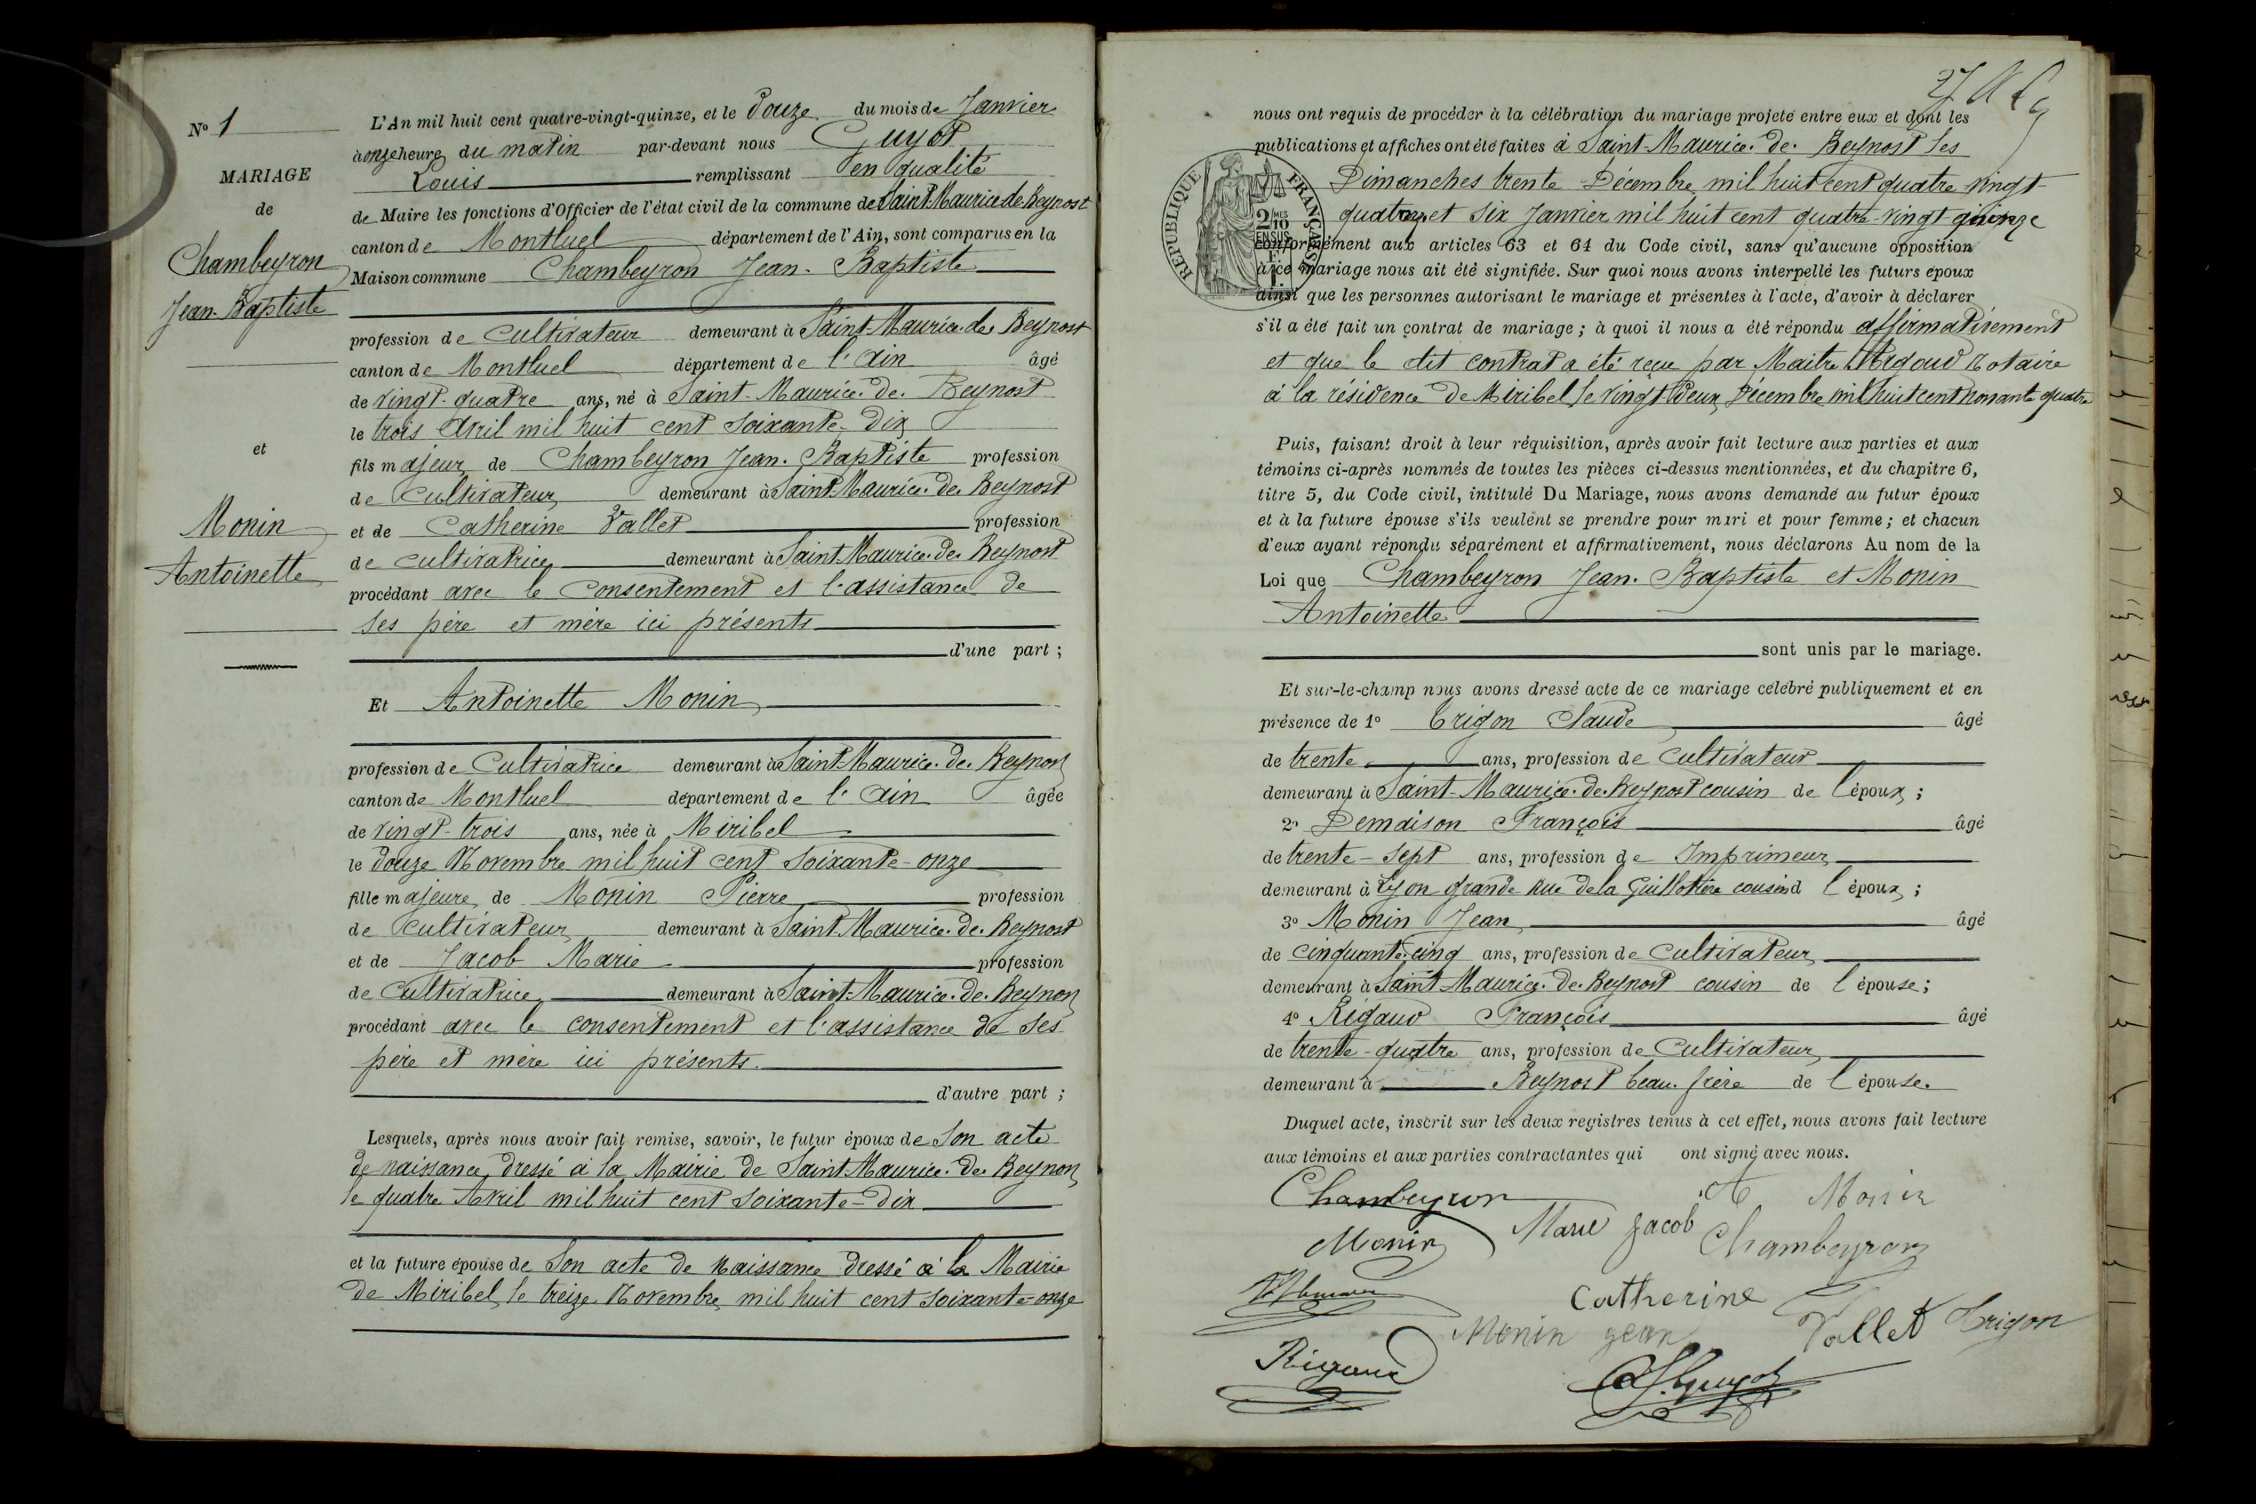 N° 1
MARIAGE
de
Chambeyron
Jean-Baptiste
et
Monin
Antoinette
L'An mil huit cent quatre-vingt-quinze, et le Douze du mois de Janvier
à onze heures du matin par-devant nous Guyot
Louis remplissant en qualité
de Maire les fonctions d'Officier de l'état civil de la commune de Saint-Maurice de Beynost
canton de Montluel département de l'Ain, sont comparus en la
Maison commune Chambeyron Jean-Baptiste
profession de Cultivateur demeurant à Saint-Maurice-de-Beynost
canton de Montluel département de l'Ain âgé
de vingt-quatre ans, né à Saint-Maurice-de-Beynost
le trois Avril mil huit cent soixante-Dix
fils majeur de Chambeyron Jean-Baptiste profession
de Cultivateur demeurant à Saint-Maurice-de-Beynost
et de Catherine Vallet profession
de cultivatrice demeurant à Saint-Maurice-de-Beynost
procédant avec le consentement et l'assistance de
ses père et mère ici présents
d'une part ;
Et Antoinette Monin
profession de Cultivatrice demeurant à Saint-Maurice-de-Beynost
canton de Montluel département de l'Ain âgée
de vingt-trois ans, née à Miribel
le Douze Novembre mil huit cent soixante-onze
fille majeure de Monin Pierre profession
de cultivateur demeurant à Saint-Maurice-de-Beynost
et de Jacob Marie profession
de Cultivatrice demeurant à Saint-Maurice-de-Beynost
procédant avec le consentement et l'assistance de ses
père et mère ici présents.
d'autre part ;
Lesquels, après nous avoir fait remise, savoir, le futur époux de Son acte
de naissance dressé à la Mairie de Saint-Maurice-de-Beynost
le quatre Avril mil huit cent soixante-dix
et la future épouse de Son acte de naissance dressé à la Mairie
de Miribel le treize Novembre mil huit cent soixante-onze
nous ont requis de procéder à la célébration du mariage projeté entre eux et dont les
publications et affiches ont été faites à Saint-Maurice-de-Beynost les
RÉPUBLIQUE FRANÇAISE
2/10 MES
EN SUS
Dimanches trente Décembre mil huit cent quatre vingt
quatorze et six Janvier mil huit cent quatre-vingt quinze
conformément aux articles 63 et 64 du Code civil, sans qu'aucune opposition
à ce mariage nous ait été signifiée. Sur quoi nous avons interpellé les futurs époux
ainsi que les personnes autorisant le mariage et présentes à l'acte, d'avoir à déclarer
s'il a été fait un contrat de mariage ; à quoi il nous a été répondu affirmativement
et que le dit contrat a été reçu par Maître Notaire
à la résidence de Miribel le vingt Deux Décembre mil huit cent nonante quatre
Puis, faisant droit à leur réquisition, après avoir fait lecture aux parties et aux
témoins ci-après nommés de toutes les pièces ci-dessus mentionnées, et du chapitre 6,
titre 5, du Code civil, intitulé Du Mariage, nous avons demandé au futur époux
et à la future épouse s'ils veulent se prendre pour mari et pour femme ; et chacun
d'eux ayant répondu séparément et affirmativement, nous déclarons Au nom de la
Loi que Chambeyron Jean-Baptiste et Monin
Antoinette
sont unis par le mariage.
Et sur-le-champ nous avons dressé acte de ce mariage célébré publiquement et en
présence de 1° Trigon Claude âgé
de trente ans, profession de Cultivateur
demeurant à Saint-Maurice-de-Beynost cousin de l'époux ;
2° Demaison François âgé
de trente-sept ans, profession de Imprimeur
demeurant à Lyon grande Rue de la Guillotière cousin d l'époux ;
3° Monin Jean âgé
de cinquante-cinq ans, profession de Cultivateur
demeurant à Saint-Maurice-de-Beynost cousin de l'épouse ;
4° Rigaud François âgé
de trente-quatre ans, profession de Cultivateur
demeurant à Beynost beau-frère de l'épouse.
Duquel acte, inscrit sur les deux registres tenus à cet effet, nous avons fait lecture
aux témoins et aux parties contractantes qui ont signé avec nous.
Chambeyron A Monin
Monin Marie Jacob Chambeyron
Catherine Vallet Trigon
Monin Jean
Rigaud
L. Guyot